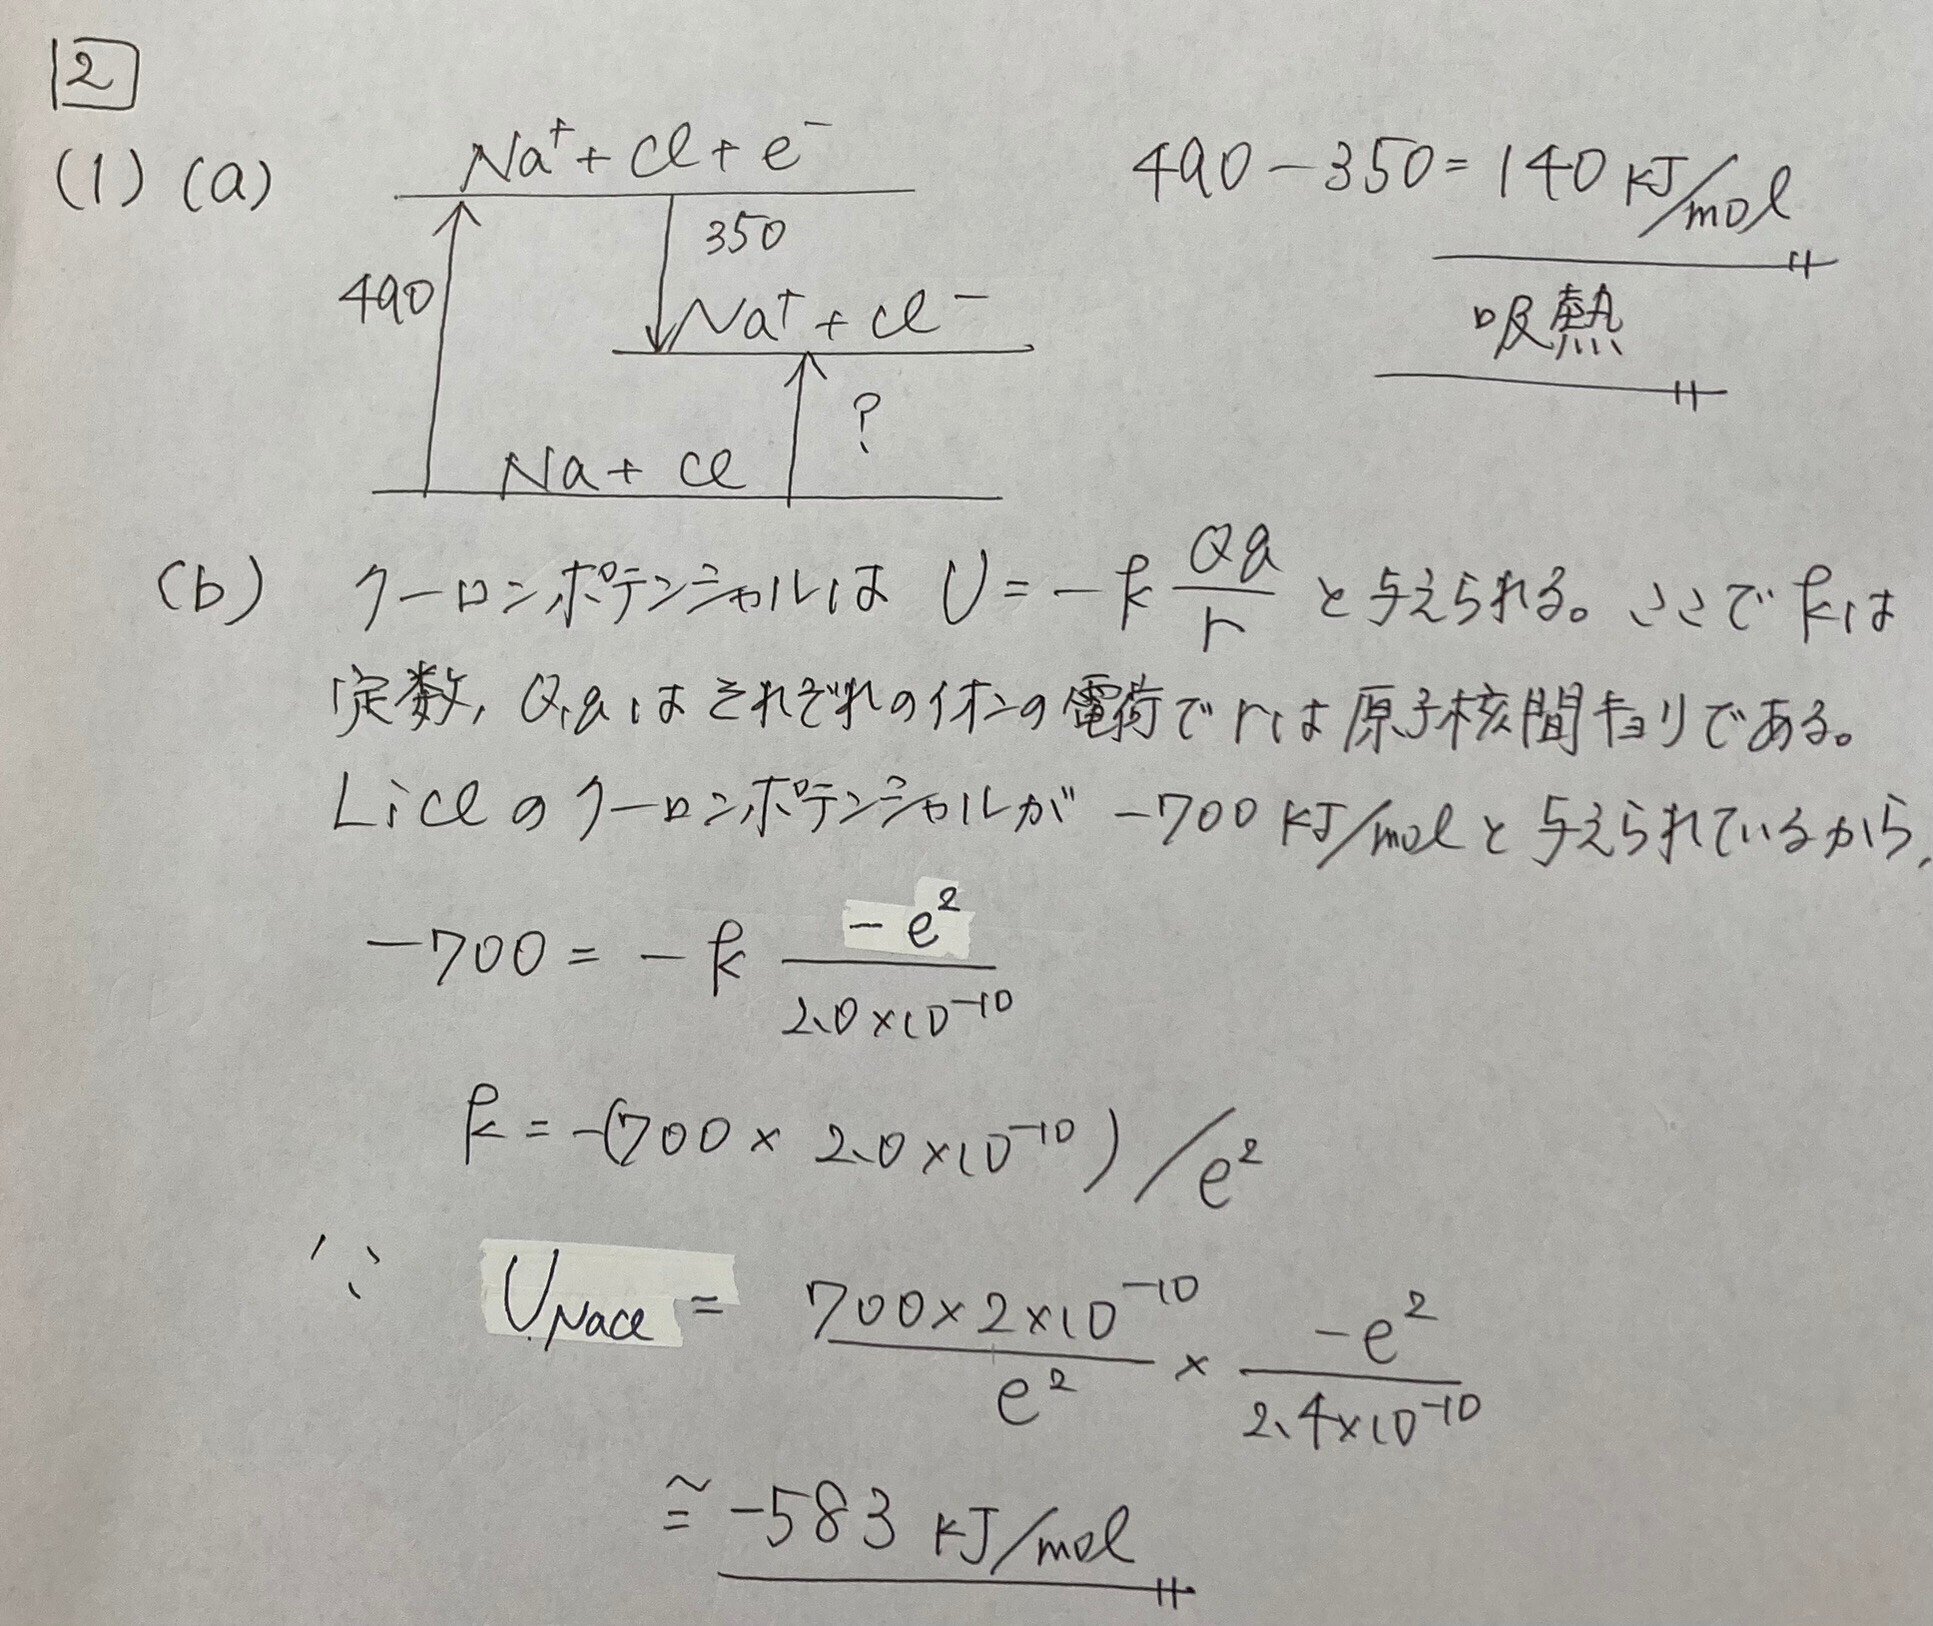 2
(1) (a) Na⁺ + Cl + e⁻ 490 − 350 = 140 kJ/mol
350
490
Na⁺ + Cl⁻ 吸熱
?
Na + Cl
(b) クーロンポテンシャルは U = −k Qq/r と与えられる。ここで kは
定数, Q,q,はそれぞれのイオンの電荷で rは原子核間キョリである。
LiClのクーロンポテンシャルが −700 kJ/molと与えられているから,
−700 = −k −e²/2.0×10⁻¹⁰
k = −(700 × 2.0×10⁻¹⁰)/e²
∵ U_NaCl = 700×2×10⁻¹⁰/e² × −e²/2.4×10⁻¹⁰
≅ −583 kJ/mol